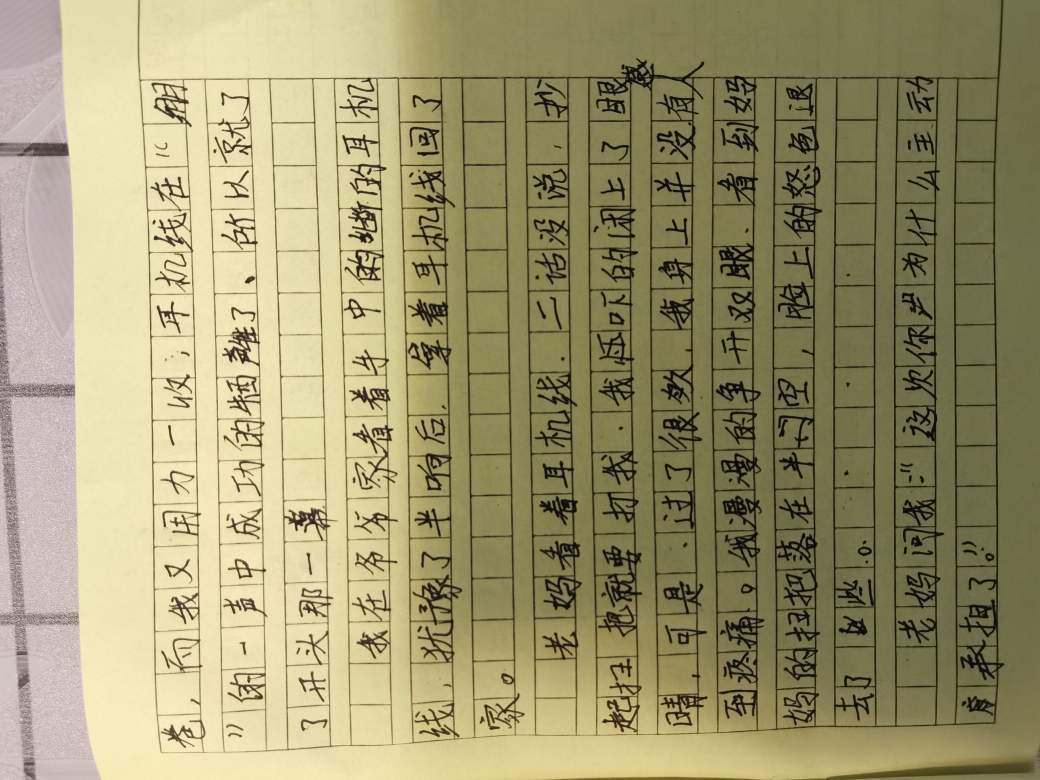 卷，而我又用力一收；耳机线在“绷
”的一声中成功的牺牲了、所以就了
了开头那一幕
我在爷爷家看着手中的断的耳机
线，犹豫了半响后．拿着耳机线回了
家。
老妈看着耳机线．二话没说，抄
起扫把就要打我．我怄吓的闭上了眼
睛，可是．过了很久．我身上并没有感人
到疼痛。我漫漫的争开双眼、看到妈
妈的扫把落在半闪空，脸上的怒色退
去了些。
老妈问我：“这次你为什么主动
承担了。”